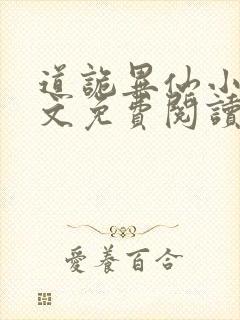 道詭異仙小
文免費閱讀
愛養百合